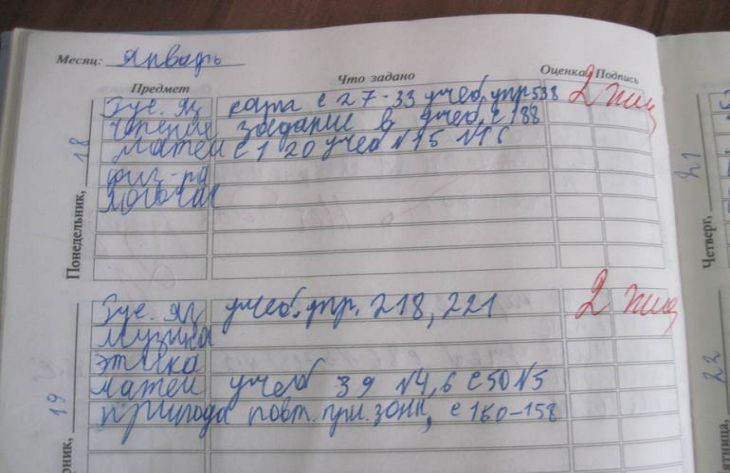 Месяц: январь
Предмет Что задано Оценка Подпись
Рус. яз с 27-33 учеб. упр 538 2
чтение задание в учеб. с 188
матем с 120 учеб №15 №16
физ-ра
Понедельник, 18
Рус. яз учеб. упр. 218, 221 2
музыка
этика
матем учеб 39 №4,6 с 50 №5
природа повт. при. зоны, с 150-158
орник, 19
Четверг, 21
ятница, 22